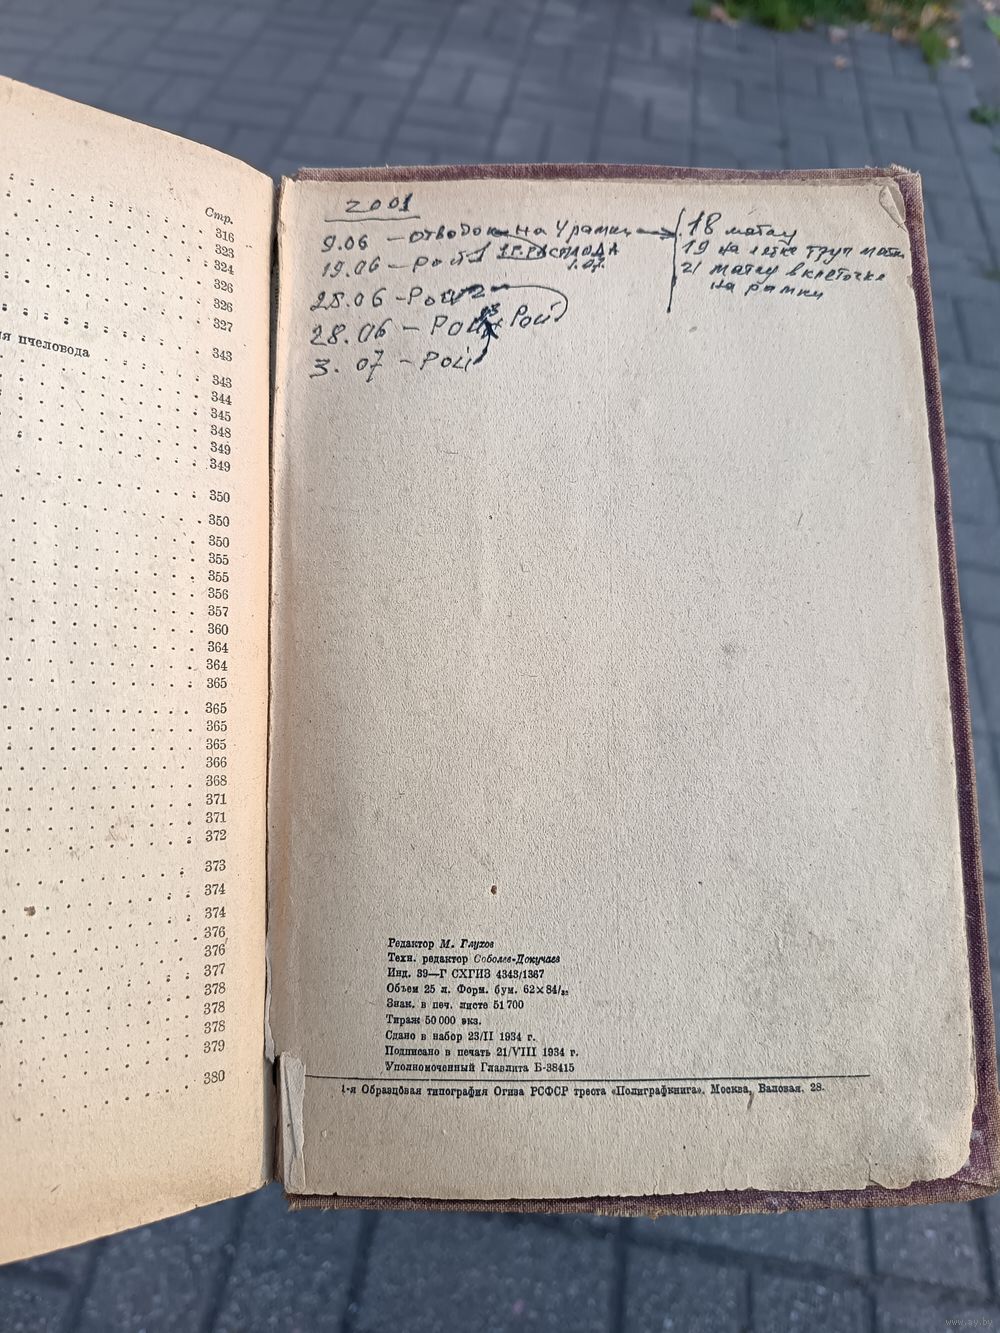 Стр.
316
323
324
326
326
327
ия пчеловода
343
343
344
345
348
349
349
350
350
350
355
355
356
357
360
364
364
365
365
365
365
366
368
371
371
372
373
374
374
376
376
377
378
378
378
379
380
2001
9.06 – отводок на 4 рамки
19.06 – Рой 1
РАСПЛОДА
1.07.
25.06 – Рой 2
28.06 – Рой 3 Рой
3.07 – Рой
18 матку
19 на летке труп матк
21 матку в клеточке
на рамку
Редактор М. Глухов
Техн. редактор Соболев-Докучаев
Инд. 39—Г СХГИЗ 4343/1367
Объем 25 л. Форм. бум. 62×84/₃₂
Знак. в печ. листе 51 700
Тираж 50 000 экз.
Сдано в набор 23/II 1934 г.
Подписано в печать 21/VIII 1934 г.
Уполномоченный Главлита Б-38415
1-я Образцовая типография Огиза РСФСР треста «Полиграфкнига». Москва, Валовая, 28.
www.ay.by